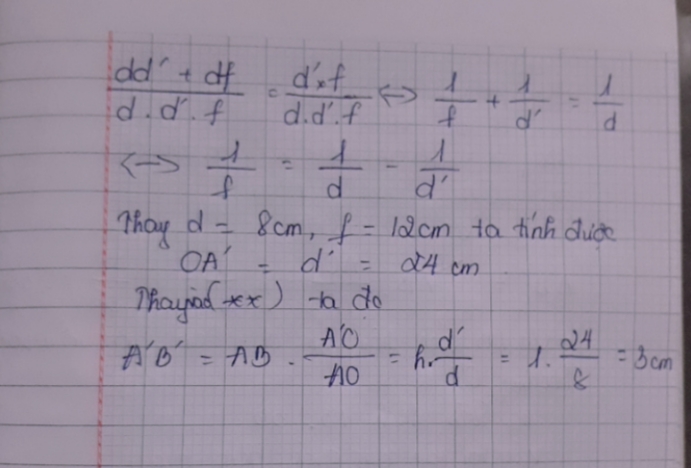 (dd' + df)/(d.d'.f) = (d'.f)/(d.d'.f) <-> 1/f + 1/d' = 1/d
<-> 1/f = 1/d - 1/d'
Thay d = 8cm, f = 12cm ta tính được
OA' = d' = 24 cm
Thay vào (**) ta đc
A'B' = AB . A'O/AO = h. d'/d = 1. 24/8 = 3cm